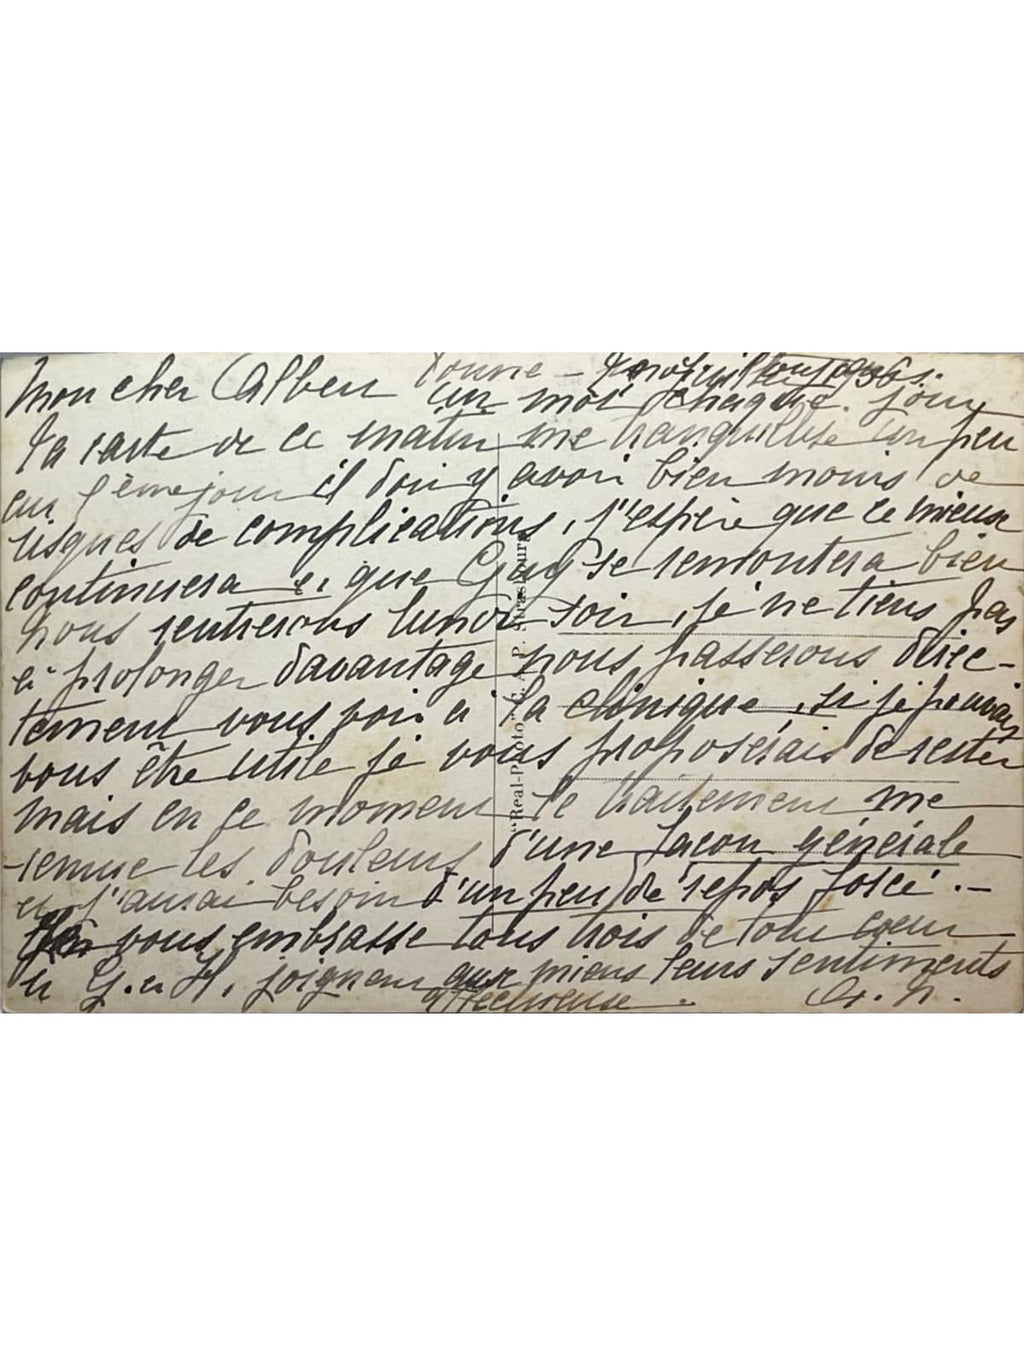 Mon cher Albert Donne-
un mot chaque jour
Ta carte de ce matin me tranquillise un peu
au 9ème jour il doit y avoir bien moins de
risques de complications, j'espère que ce mieux
continuera et que Guy se remontera bien
nous rentrerons lundi soir, je ne tiens pas
à prolonger davantage nous passerons direc-
tement vous voir à la clinique, si je pouvais
vous être utile je vous proposerais de rester
mais en ce moment le traitement me
remue les douleurs d'une façon générale
et j'aurai besoin d'un peu de repos forcé.-
vous embrasse tous trois de tout cœur
G. et H. joignent aux miens leurs sentiments
affectueuse.
"Real-Photo"